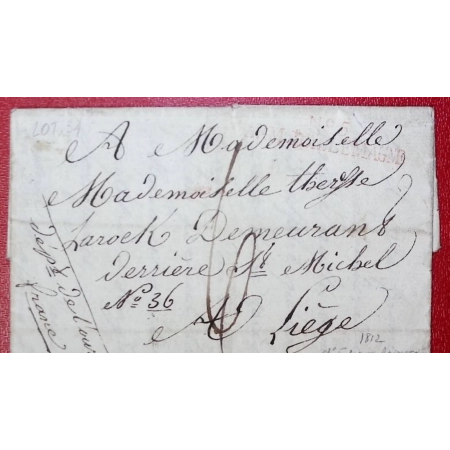 LOT 34
A Mademoiselle
Mademoiselle therese
Larock Demeurant
derrière St Michel
No 36
A Liège
dépt de l'our
france
1812